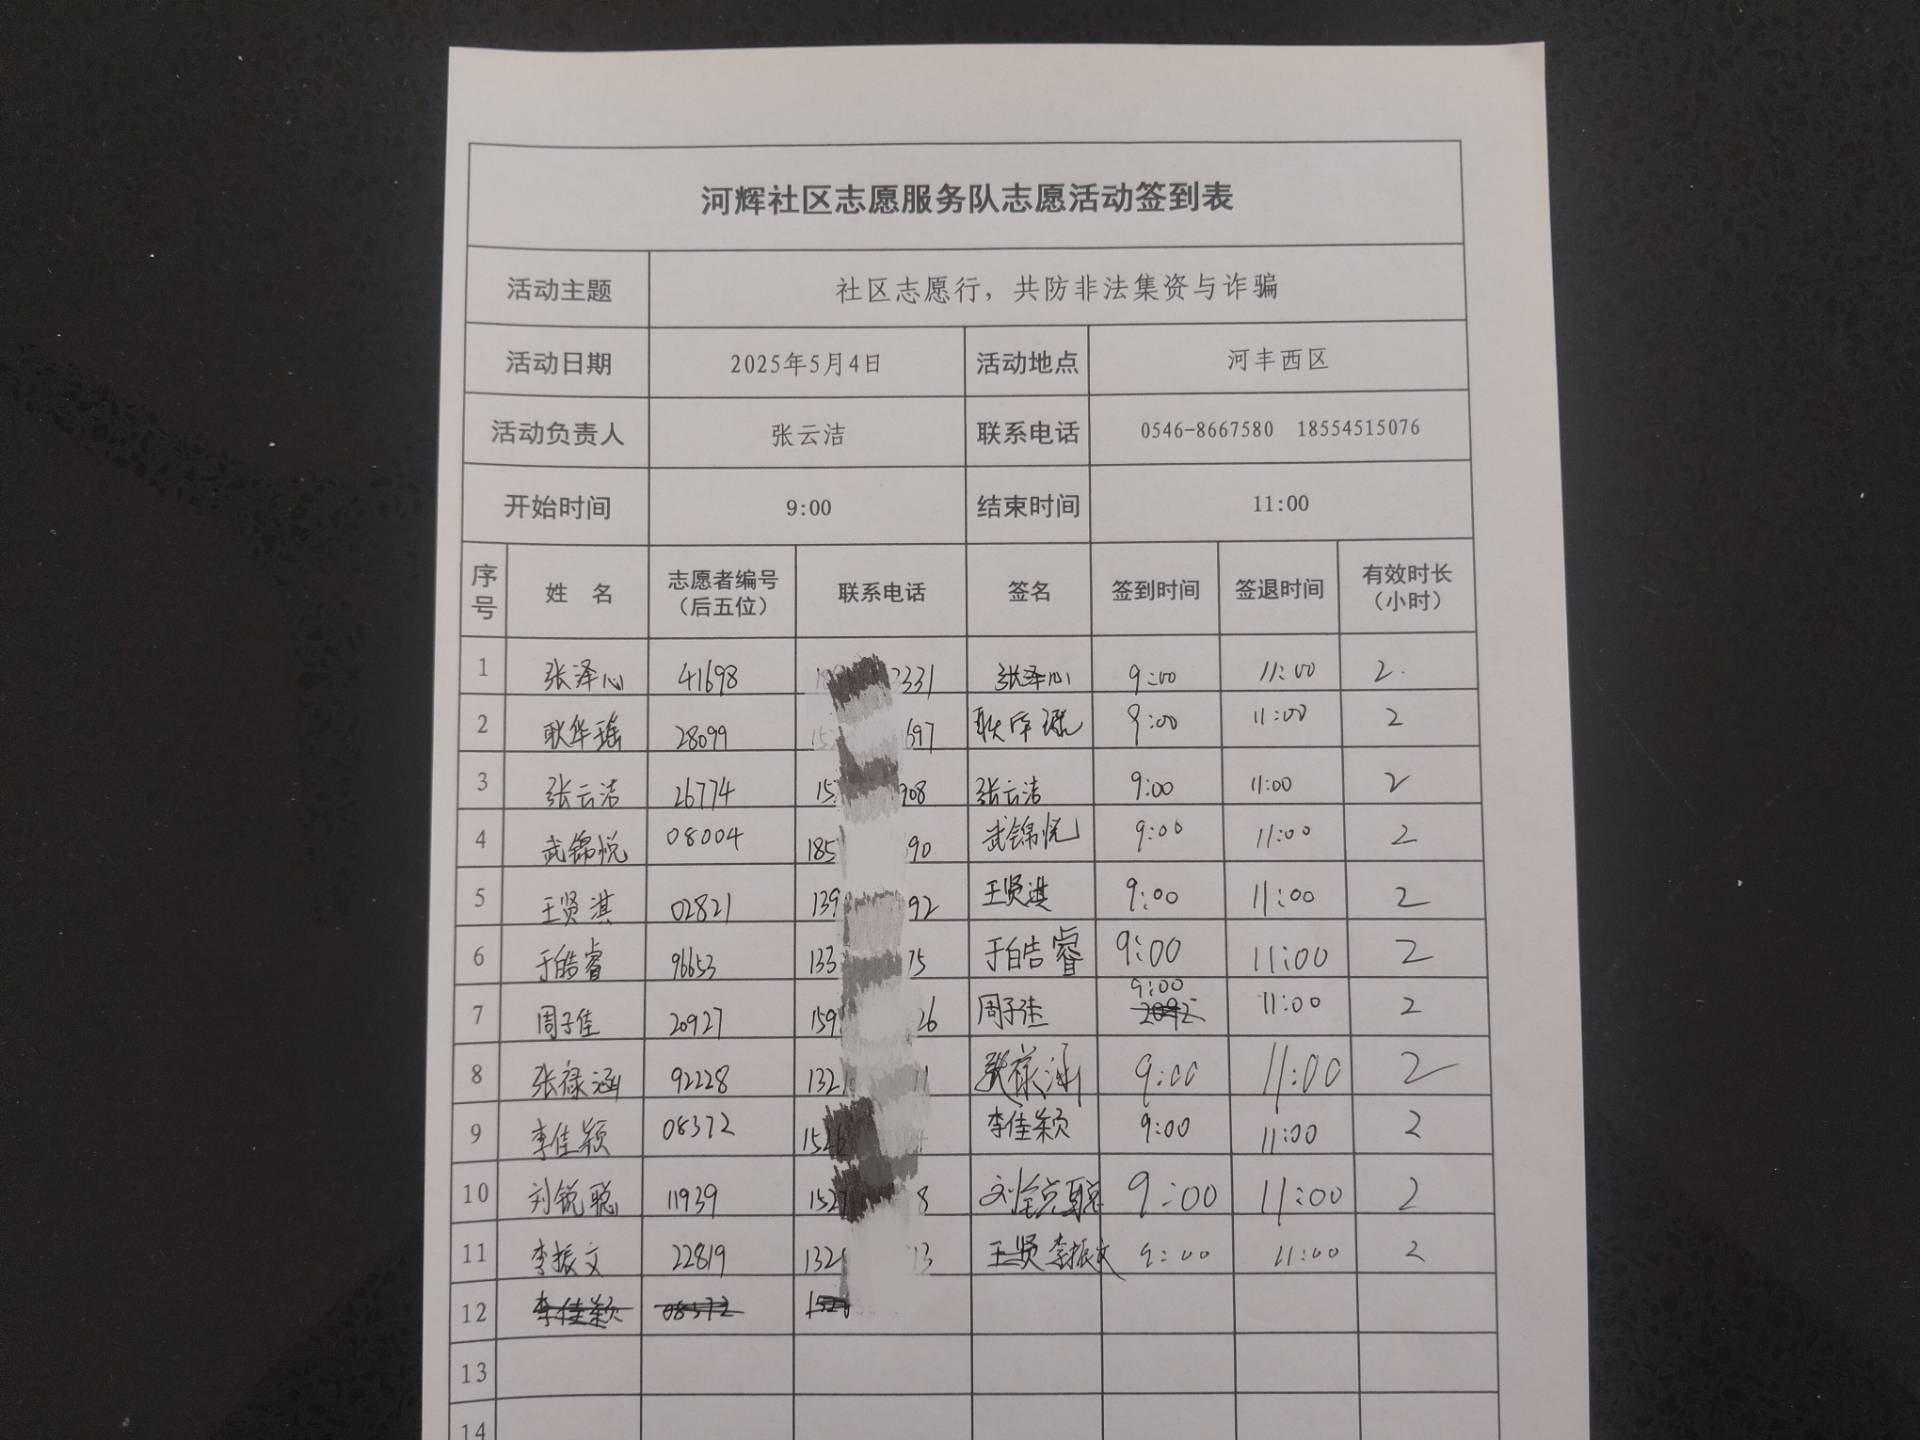 河辉社区志愿服务队志愿活动签到表
活动主题 社区志愿行，共防非法集资与诈骗
活动日期 2025年5月4日 活动地点 河丰西区
活动负责人 张云洁 联系电话 0546-8667580 18554515076
开始时间 9:00 结束时间 11:00
序号 姓 名 志愿者编号（后五位） 联系电话 签名 签到时间 签退时间 有效时长（小时）
1 张泽心 41698 3331 张泽心 9:00 11:00 2.
2 耿华瑶 28099 15 697 9:00 11:00 2
3 张云洁 26774 15 908 张云洁 9:00 11:00 2
4 武锦悦 08004 185 90 武锦悦 9:00 11:00 2
5 王贤淇 02821 139 92 王贤淇 9:00 11:00 2
6 于皓睿 96653 133 75 于皓睿 9:00 11:00 2
7 周子佳 20927 159 26 周子佳 9:00 2092 11:00 2
8 张禄涵 92228 132 11 张禄涵 9:00 11:00 2
9 李佳颖 08372 152 李佳颖 9:00 11:00 2
10 刘锐聪 11939 152 8 刘锐聪 9:00 11:00 2
11 李振文 22819 132 13 王贤 李振文 9:00 11:00 2
12 李佳颖 08372 152
13
14